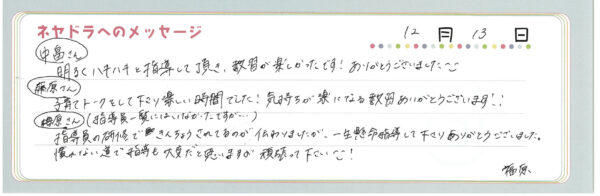 ネヤドラへのメッセージ
12月13日
中畠さん
明るくハキハキと指導して頂き、教習が楽しかったです!ありがとうございました〜
藤原さん
子育てトークをして下さり楽しい時間でした!気持ちが楽になる教習ありがとうございます!!
柳原さん(指導員一覧にはいなかったですが…)
指導員の研修できんちょうされてるのが伝わりましたが、一生懸命指導して下さりありがとうございました。
慣れない道で指導も大変だと思いますが頑張って下さい〜!
福原